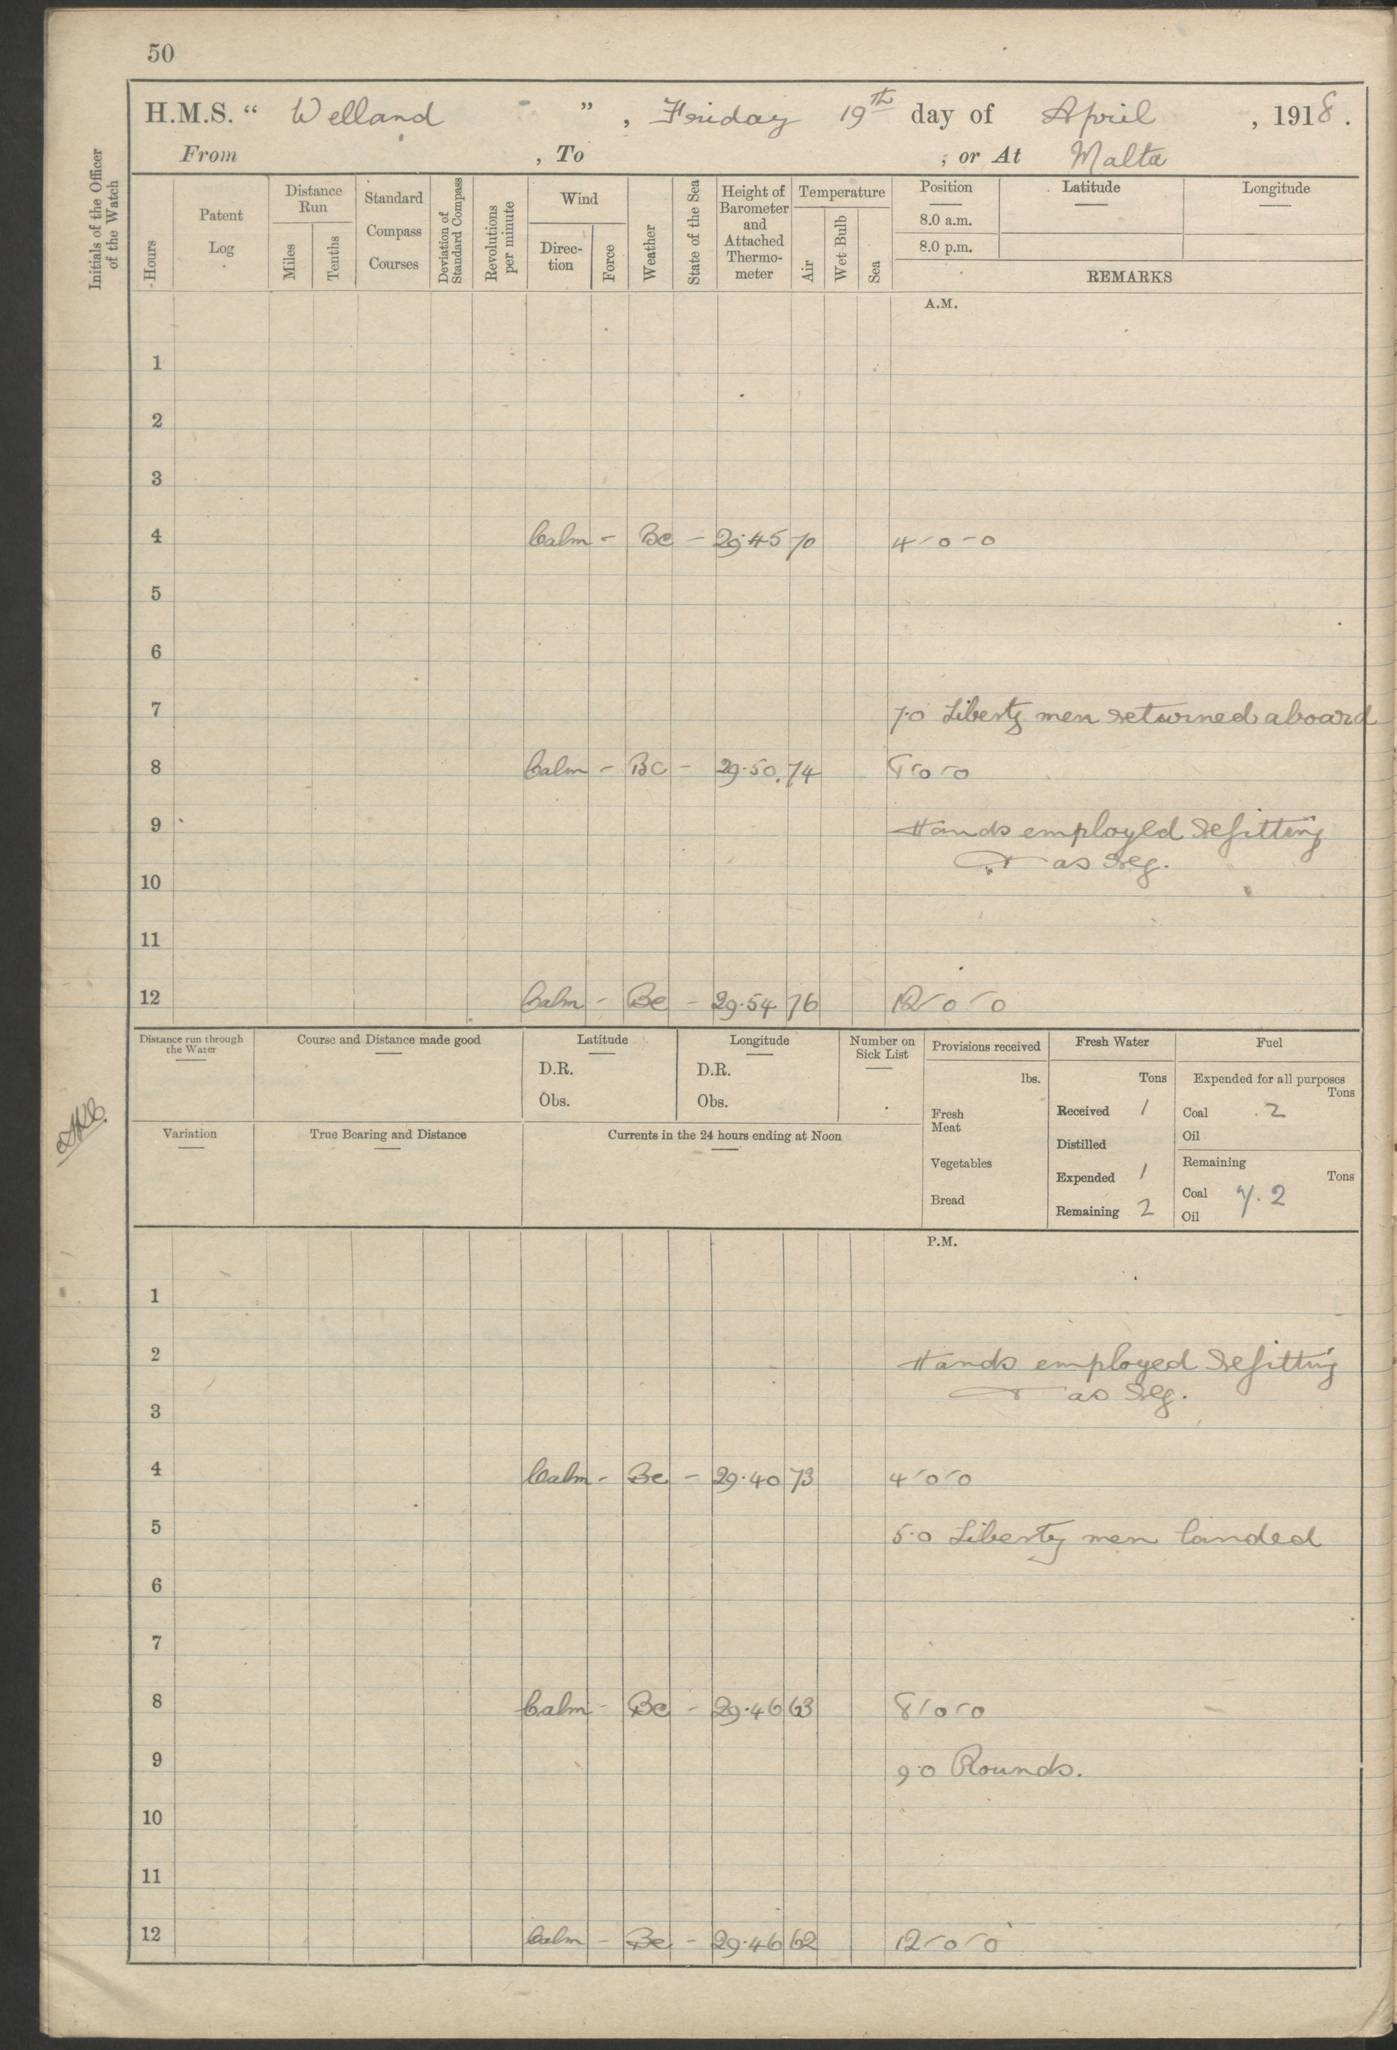 50
H.M.S. “ Welland ”, Friday 19th day of April, 1918.
From , To , or At Malta
Initials of the Officer of the Watch
Hours
Patent Log
Distance Run
Miles
Tenths
Standard Compass Courses
Deviation of Standard Compass
Revolutions per minute
Wind
Direc-tion
Force
Weather
State of the Sea
Height of Barometer and Attached Thermo-meter
Temperature
Air
Wet Bulb
Sea
Position
8.0 a.m.
8.0 p.m.
Latitude
Longitude
REMARKS
A.M.
1
2
3
4 Calm - Bc - 29.45 70 4-0-0
5
6
7 7.0 Liberty men returned aboard
8 Calm - BC - 29.50 74 8-0-0
9 Hands employed refitting
as req.
10
11
12 Calm - Bc - 29.54 76 12-0-0
Distance run through the Water
Course and Distance made good
Latitude
D.R.
Obs.
Longitude
D.R.
Obs.
Number on Sick List
Provisions received
lbs.
Fresh Meat
Vegetables
Bread
Fresh Water
Tons
Received 1
Distilled
Expended 1
Remaining 2
Fuel
Expended for all purposes
Tons
Coal .2
Oil
Remaining
Tons
Coal 7.2
Oil
Variation
True Bearing and Distance
Currents in the 24 hours ending at Noon
P.M.
1
2 Hands employed refitting
as req.
3
4 Calm - Bc - 29.40 73 4-0-0
5 5.0 Liberty men landed
6
7
8 Calm - Bc - 29.46 63 8-0-0
9 9.0 Rounds.
10
11
12 Calm - Bc - 29.46 62 12-0-0